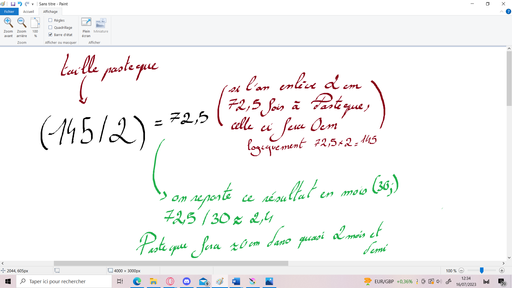 Sans titre - Paint
Fichier Accueil Affichage
Zoom avant Zoom arrière 100 % Règles Quadrillage Barre d'état Plein écran Miniature
Afficher ou masquer Afficher
taille pasteque
(145/2) = 72,5
(si l'on enlève 2 cm
72,5 fois à Pasteque,
celle ci sera 0cm
logiquement 72,5x2=145)
on reporte ce résultat en mois (30j)
72,5/30 ≈ 2,4
Pasteque sera ≈0cm dans quasi 2 mois et
demi
2044, 605px 4000 × 3000px 100 %
Taper ici pour rechercher
EUR/GBP +0,36%
12:34
16/07/2023